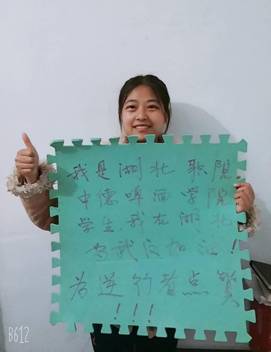 我是湖北 歌陽
中德啤酒学院
学生,我在湖北
为武汉加油!
为逆行者点赞
!!!
B612